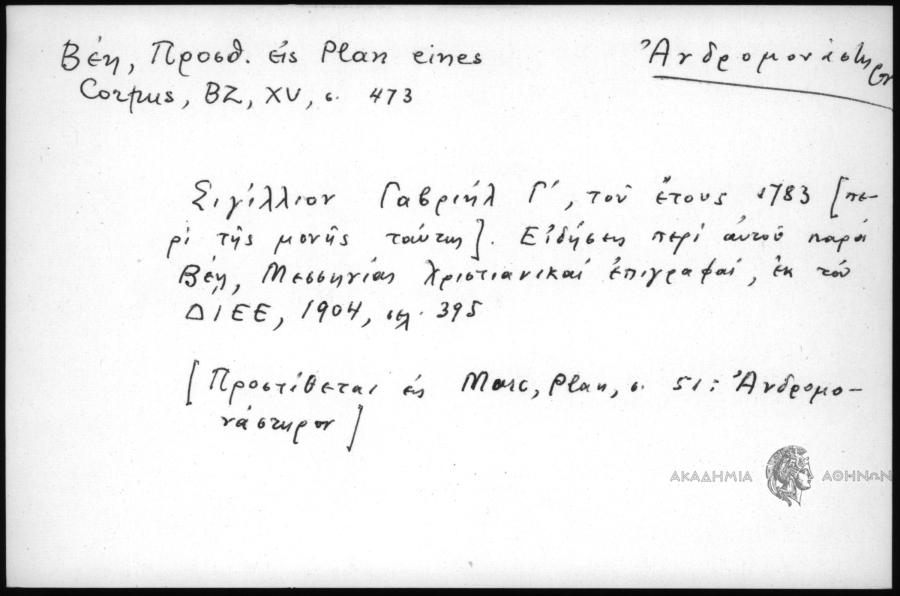 Βέη, Προσθ. εἰς Plan eines
Corpus, BZ, XV, σ. 473
Ἀνδρομονάστηρον
Σιγίλλιον Γαβριήλ Γ΄, τοῦ ἔτους 1783 [πε-
ρὶ τῆς μονῆς ταύτης]. Εἰδήσεις περὶ αὐτοῦ παρὰ
Βέῃ, Μεσσηνίας Χριστιανικαὶ ἐπιγραφαί, ἐκ τοῦ
ΔΙΕΕ, 1904, σελ. 395
[Προστίθεται εἰς Marc, Plan, σ. 51: Ἀνδρομο-
νάστηρον]
ΑΚΑΔΗΜΙΑ ΑΘΗΝΩΝ